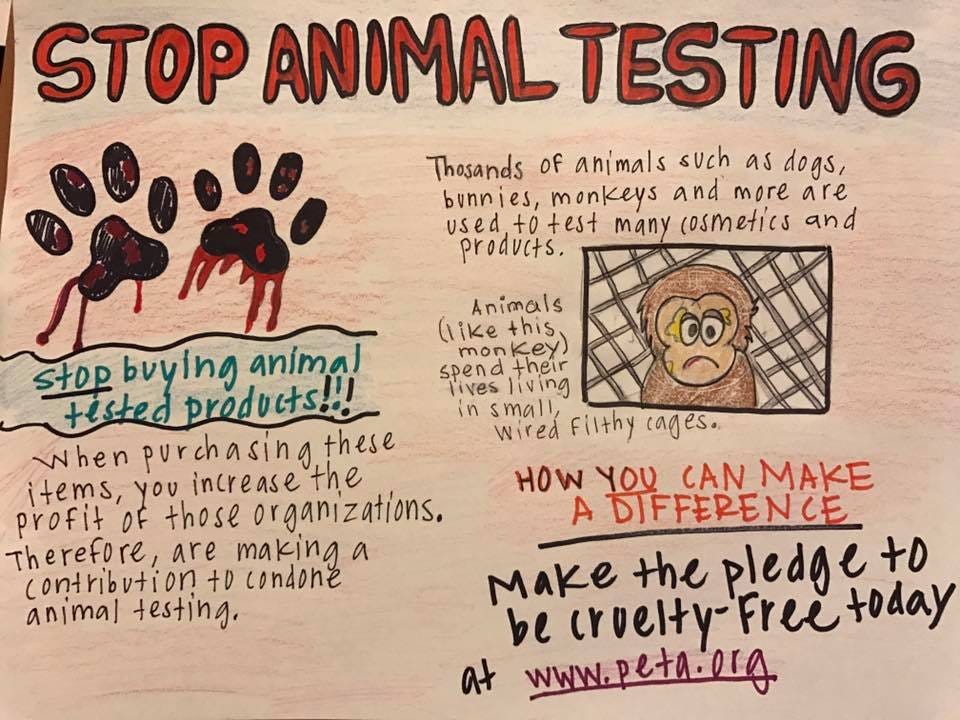 STOP ANIMAL TESTING
Thosands of animals such as dogs,
bunnies, monkeys and more are
used to test many cosmetics and
products.
Animals
(like this
monkey)
spend their
lives living
in small,
wired filthy cages.
stop buying animal
tested products!!!
When purchasing these
items, you increase the
profit of those organizations.
Therefore, are making a
contribution to condone
animal testing.
HOW YOU CAN MAKE
A DIFFERENCE
Make the pledge to
be cruelty-Free today
at www.peta.org